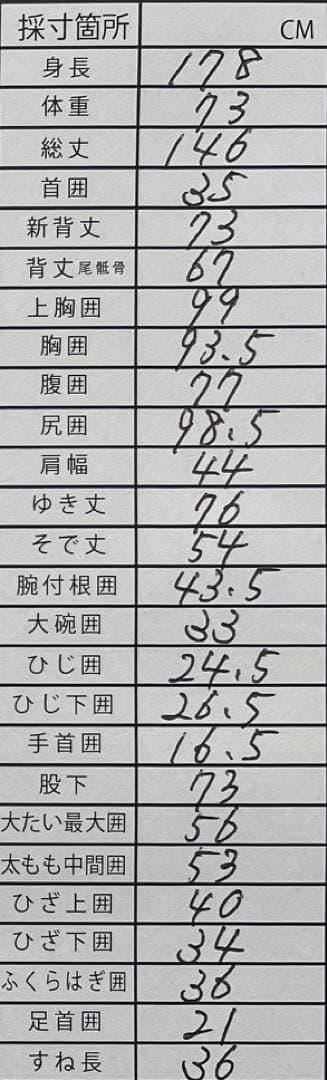 採寸箇所 CM
身長 178
体重 73
総丈 146
首囲 35
新背丈 73
背丈尾骶骨 67
上胸囲 99
胸囲 93.5
腹囲 77
尻囲 98.5
肩幅 44
ゆき丈 76
そで丈 54
腕付根囲 43.5
大碗囲 33
ひじ囲 24.5
ひじ下囲 26.5
手首囲 16.5
股下 73
大たい最大囲 56
太もも中間囲 53
ひざ上囲 40
ひざ下囲 34
ふくらはぎ囲 36
足首囲 21
すね長 36